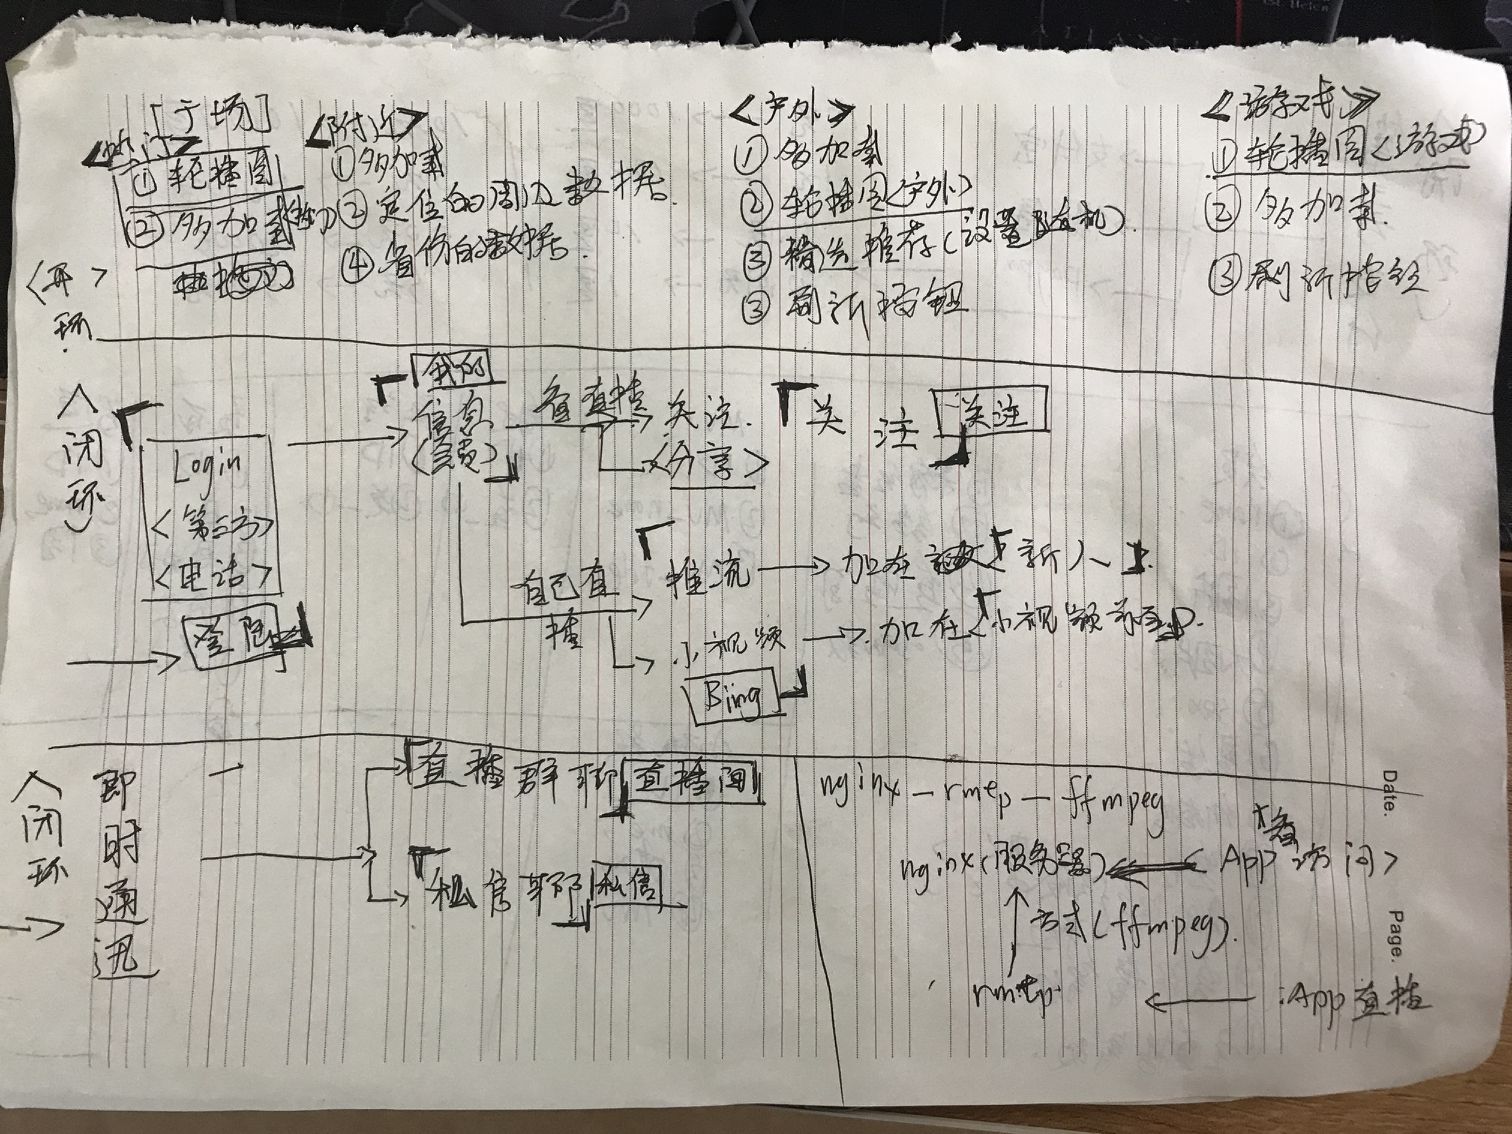 [广场]
<热门>
① 轮播图
② 多加载
<附近>
① 多加载
② 定位的周边数据.
④ 省份的数据.
<户外>
① 多加载
② 轮播图(户外)
③ 精选推荐(设置随机)
③ 刷新按钮
<游戏>
① 轮播图<游戏>
② 多加载.
③ 刷新按钮
<开
环.
入
闭
环
Login
<第三方>
<电话>
登陆
我的
信息
看直播
关注.
<分享>
关注
关注
自己直
播
推流
加在
新人
小视频
加在<小视频
Biing
入
闭
环
即
时
通
讯
直播群聊
直播间
私信聊
私信
nginx - rmtp - ffmpeg
nginx(服务器)
<App 访问>
方式(ffmpeg).
rmtp
:App直播
Date.
Page.